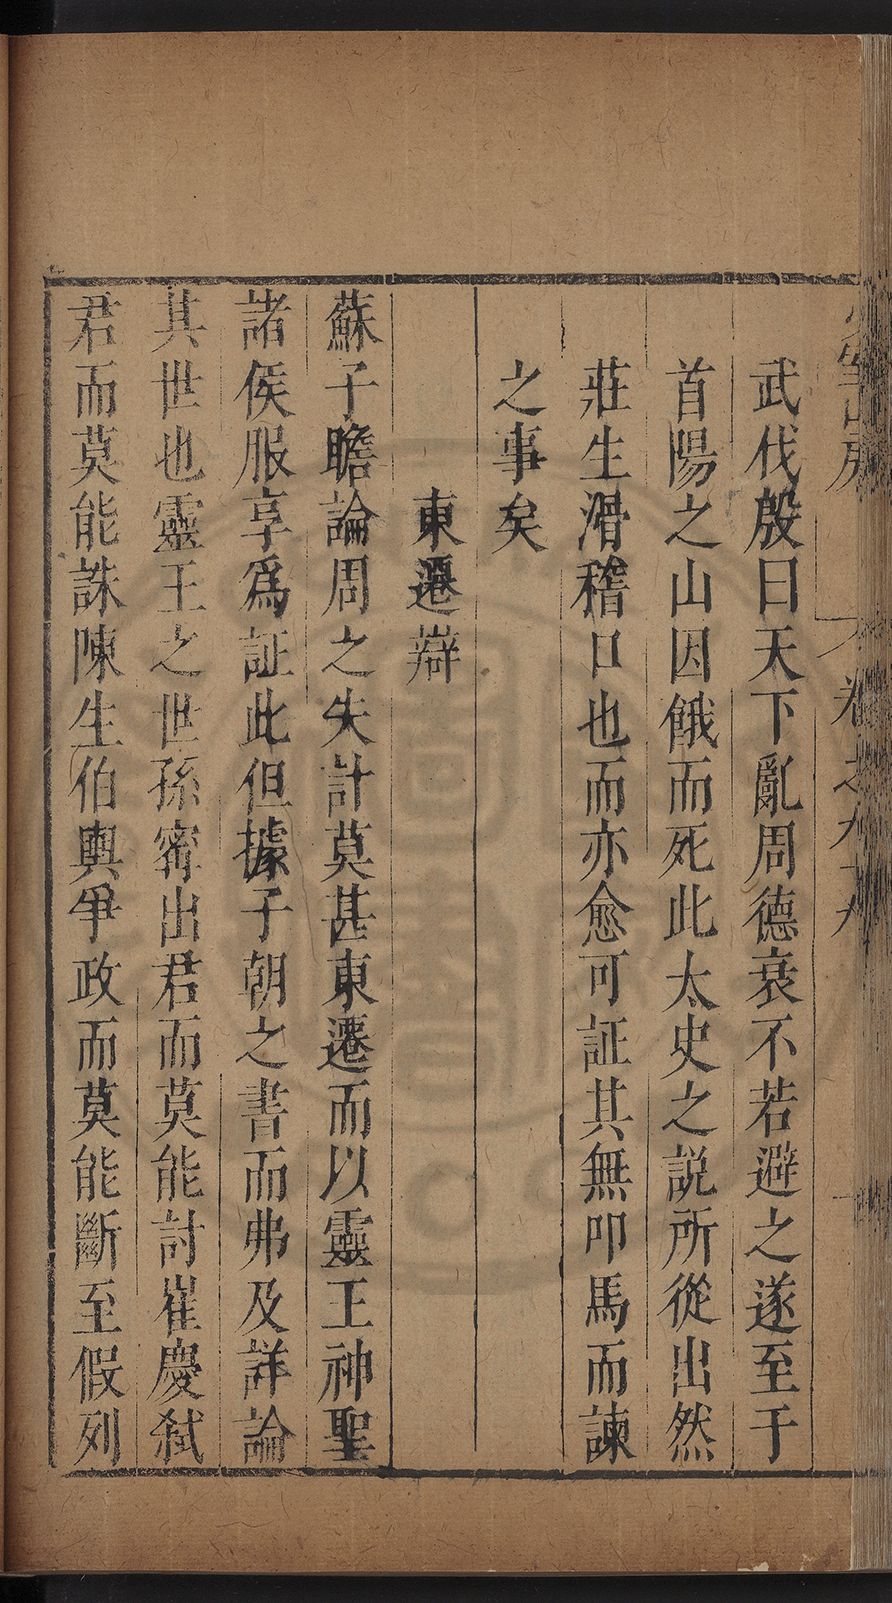 武伐殷曰天下亂周德衰不若避之遂至于
首陽之山因餓而死此太史之説所從出然
莊生滑稽口也而亦愈可証其無叩馬而諫
之事矣
東遷辯
蘇子瞻論周之失計莫甚東遷而以靈王神聖
諸侯服享爲証此但據子朝之書而弗及詳論
其世也靈王之世孫甯出君而莫能討崔慶弑
君而莫能誅陳生伯輿爭政而莫能斷至假列
卷之九十九